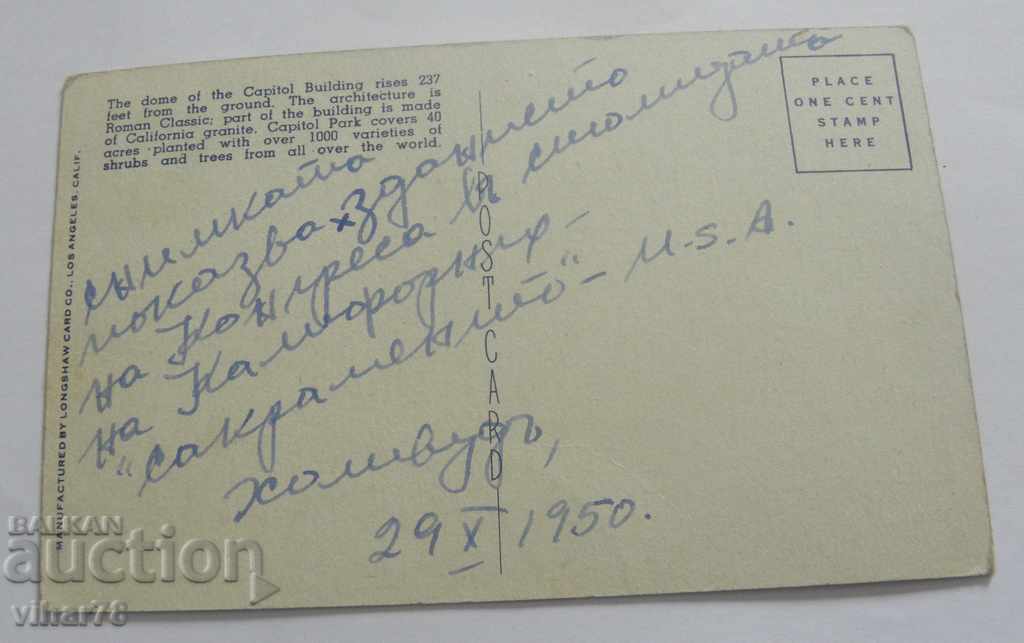 The dome of the Capitol Building rises 237
feet from the ground. The architecture is
Roman Classic; part of the building is made
of California granite. Capitol Park covers 40
acres planted with over 1000 varieties of
shrubs and trees from all over the world.
MANUFACTURED BY LONGSHAW CARD CO., LOS ANGELES, CALIF.
POST CARD
PLACE
ONE CENT
STAMP
HERE
снимката
показва зданието
на Конгреса и столицата
на Калифорния-
"сакраменто"- U-S.A.
холивудъ,
29 X 1950.
BALKAN
auction
vihar78